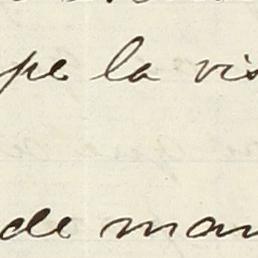 pe la vis
de man